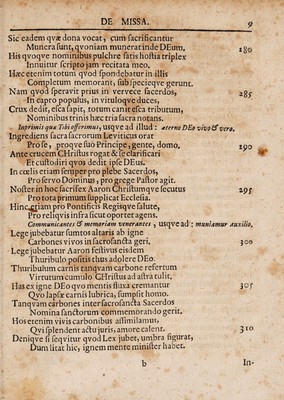 DE MISSA. 9
Sic eadem quæ dona vocat, cum sacrificantur
Munera sunt, quoniam munerat inde DEum, 280
His quoque nominibus pulchre satis hostia triplex
Innuitur scripto jam recitata meo.
Hæc etenim totum quod spondebatur in illis
Completum memorant, sub specieque gerunt.
Nam quod speravit prius in vervece sacerdos, 285
In capro populus, in vituloque duces,
Crux dedit, ipsa sapit, totum canit esca tributum,
Nominibus trinis hæc tria sacra notans.
Inprimis quæ Tibi offerimus, usque ad illud: æterno DEo vivo & vero.
Ingrediens sacra sacrorum Leviticus orat
Pro se, proque suo Principe, gente, domo, 290
Ante crucem CHristus rogat & se clarificari
Et custodiri quos dedit ipse DEus.
In cœlis etiam semper pro plebe Sacerdos,
Pro servo Dominus, pro grege Pastor agit.
Noster in hoc sacrifex Aaron Christumque secutus 295
Pro tota primum supplicat Ecclesia.
Hinc etiam pro Pontificis Regisque salute,
Pro reliquis infra sicut oportet agens.
Communicantes & memoriam venerantes, usque ad: muniamur auxilio,
Lege jubebatur sumtos altaris ab igne
Carbones vivos in sacrosancta geri, 300
Lege jubebatur Aaron festivus eisdem
Thuribulo positis thus adolere DEo.
Thuribulum carnis tanquam carbone refertum
Virtutum cumulo CHristus ad astra tulit,
Has ex igne DEo quo mentis fluxa cremantur 305
Quo lapsæ carnis lubrica, sumpsit homo.
Tanquam carbones inter sacrosancta Sacerdos
Nomina sanctorum commemorando gerit.
Hos etenim vivis carbonibus assimilamus,
Qui splendent actu juris, amore calent. 310
Denique si sequitur quod Lex jubet, umbra figurat,
Dum litat hic, ignem mente minister habet.
b In-